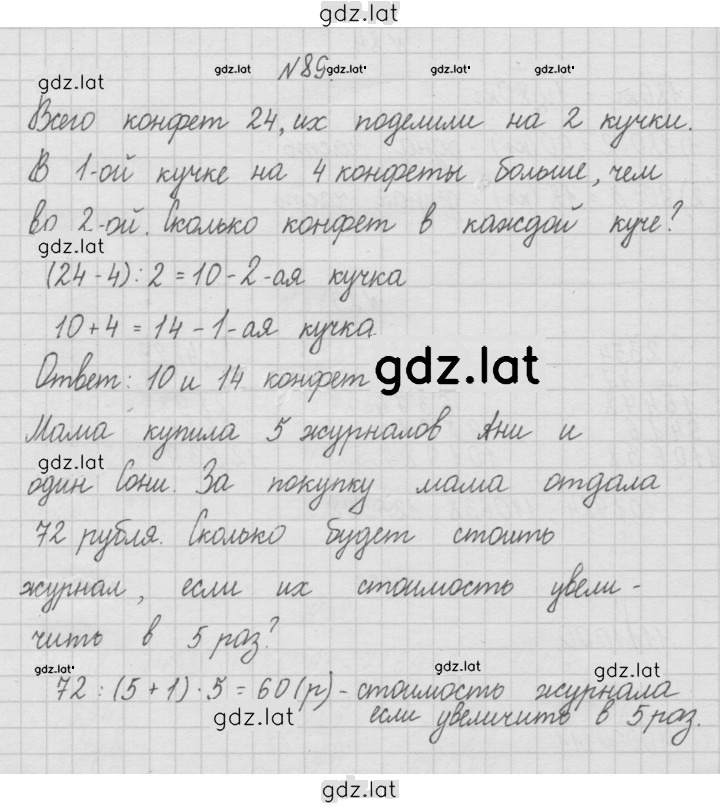 gdz.lat
№89
gdz.lat gdz.lat gdz.lat gdz.lat
gdz.lat
Всего конфет 24, их поделили на 2 кучки.
В 1-ой кучке на 4 конфеты больше, чем
во 2-ой. Сколько конфет в каждой куче?
gdz.lat
(24-4):2=10-2-ая кучка
10+4=14-1-ая кучка
Ответ: 10 и 14 конфет
gdz.lat
Мама купила 5 журналов Ани и
gdz.lat
один Сони. За покупку мама отдала
72 рубля. Сколько будет стоить
журнал, если их стоимость увели-
чить в 5 раз?
gdz.lat gdz.lat gdz.lat
72:(5+1)·5=60(р)-стоимость журнала
если увеличить в 5 раз.
gdz.lat
gdz.lat